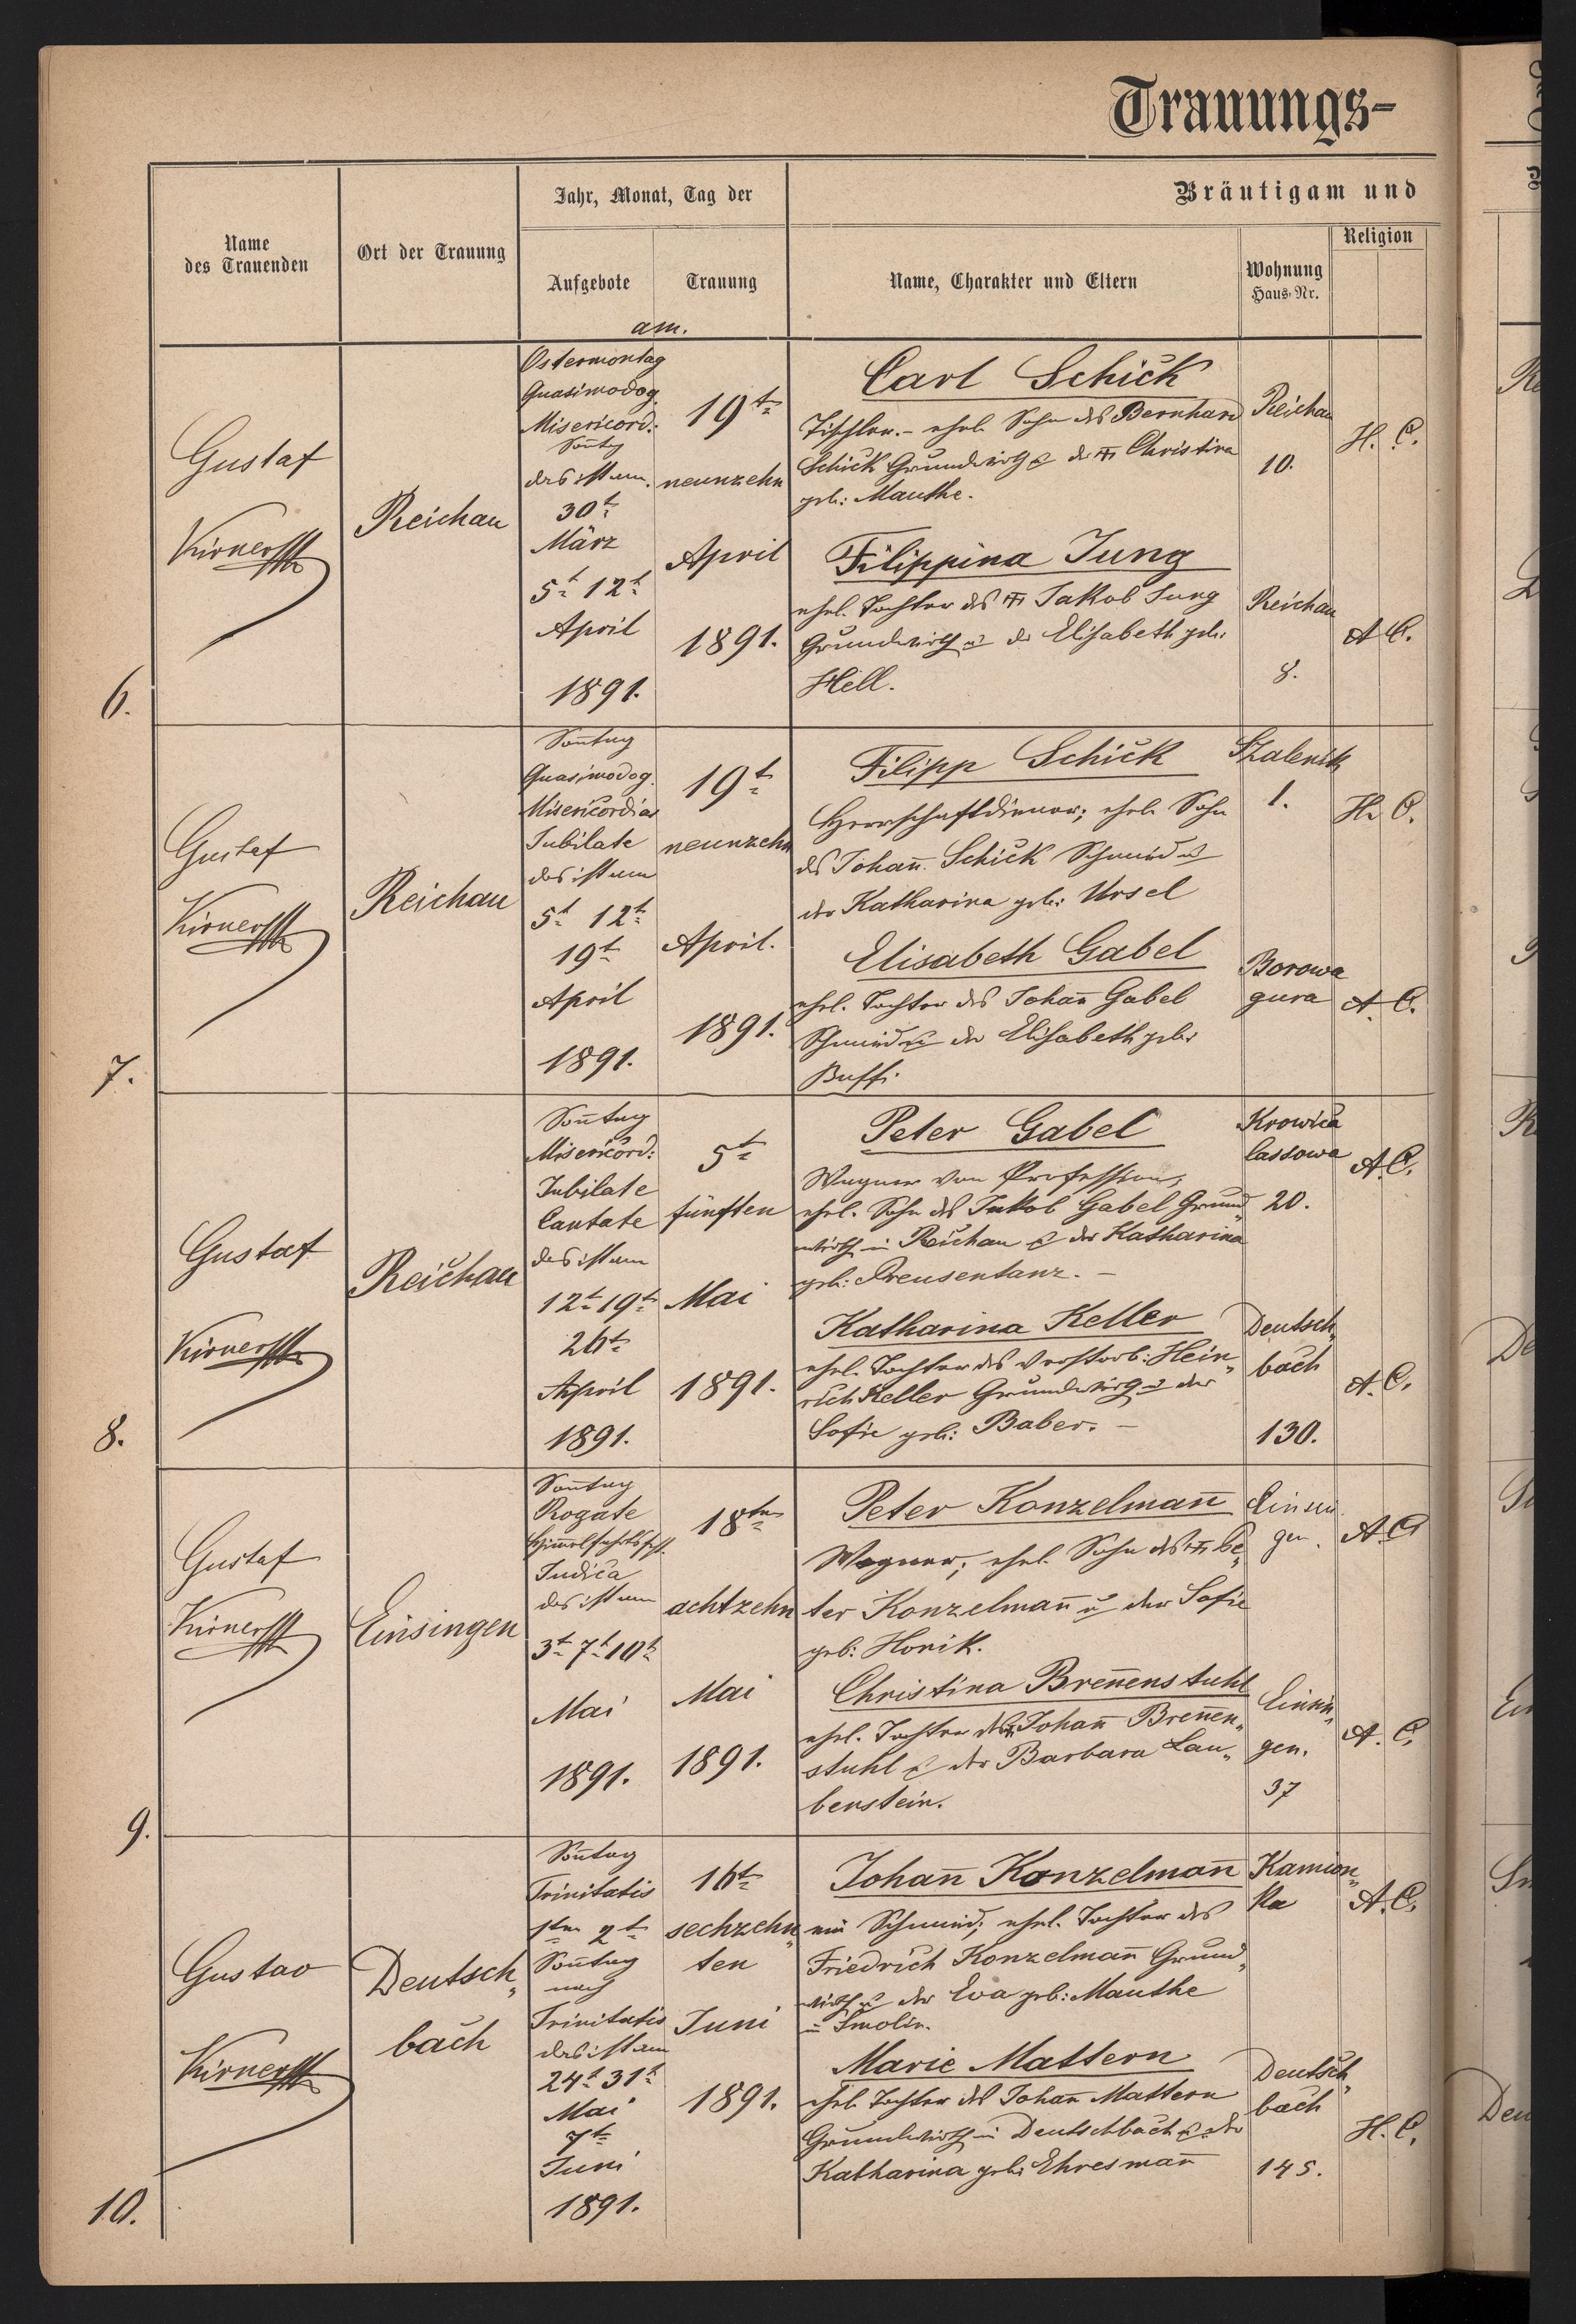 Trauungs-
Name
des Trauenden
Ort der Trauung
Jahr, Monat, Tag der
Aufgebote
Trauung
am.
Bräutigam und
Name, Charakter und Eltern
Wohnung
Haus-Nr.
Religion
6.
Gustaf
Kirner
Reichau
Ostermontag
Quasimodog.
Misericord:
Soñtag
das ist am
30t
März
5t 12t
April
1891.
19t
neunzehn
April
1891.
Carl Schick
Tischler.- ehel. Sohn des Bernhard
Schick Grundwirth & der Christina
geb: Mauthe.
Reichau
10.
H. C.
Filippina Jung
ehel. Tochter des Jakob Jung
Grundwirth u der Elisabeth geb:
Hell.
Reichau
8.
A C.
7.
Gustaf
Kirner
Reichau
Soñtag
Quasimodog.
Misericordias
Jubilate
das ist am
5t 12t
19t
April
1891.
19t
neunzehn
April.
1891.
Filipp Schick
Herrschaftdiener; ehel. Sohn
des Johañ Schick Schmied u
der Katharina geb: Ursel
Szalenik
1.
H. C.
Elisabeth Gabel
ehel. Tochter des Johañ Gabel
Schmied u der Elisabeth geb:
Buffi.
Borowa
gura
A. C.
8.
Gustaf
Kirner
Reichau
Soñtag
Misericord:
Jubilate
Cantate
das ist am
12t 19t
26t
April
1891.
5t
fünften
Mai
1891.
Peter Gabel
Wagner von Profession,
ehel. Sohn des Jakob Gabel Grund„
wirth in Reichau & der Katharina
geb: Preusentanz. –
Krowica
lassowa
20.
A. C.
Katharina Keller
ehel. Tochter des verstorb: Hein„
rich Keller Grundwirth u der
Sofie geb: Baber. –
Deutsch„
bach
130.
A. C.
9.
Gustaf
Kirner
Einsingen
Soñtag
Rogate
Himelfahrtsfest.
Judica
das ist am
3t 7t 10t
Mai
1891.
18ten
achtzehn
Mai
1891.
Peter Konzelmañ
Wagner; ehel. Sohn des Pe„
ter Konzelmañ u der Sofie
geb: Horik.
Einsin
gen.
A. C.
Christina Breñenstuhl
ehel. Tochter des Johañ Breñen„
stuhl & der Barbara Lau„
benstein.
Einsin„
gen.
37
A. C.
10.
Gustav
Kirner
Deutsch„
bach
Soñtag
Trinitatis
1ten 2t
Soñtag
nach
Trinitatis
das ist am
24t 31t
Mai
7t
Juni
1891.
16t
sechzehn„
ten
Juni
1891.
Johañ Konzelmañ
ein Schmied; ehel. Tochter des
Friedrich Konzelmañ Grund„
wirth u der Eva geb: Mauthe
in Smolin.
Kamion„
ka
A. C.
Marie Mattern
ehel. Tochter des Johañ Mattern
Grundwirth in Deutschbach & der
Katharina geb: Ehresmañ
Deutsch„
bach
145.
H. C.